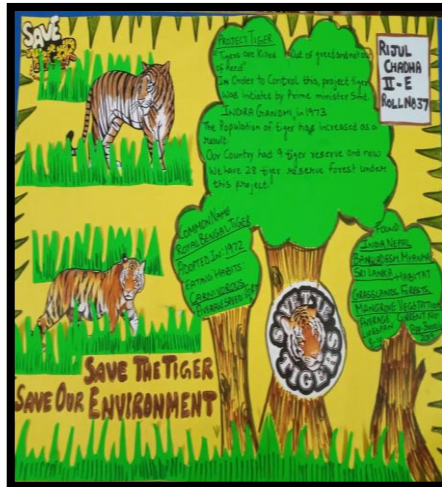 SAVE
TIGER
PROJECT TIGER
"Tigers are Killed Out of greed and not out
of Need"
In Order to Control this, project tiger
Was Initiated by Prime minister Smt.
INDIRA GANDHI, in 1973
The Population of tiger has increased as a
result.
Our Country had 9 tiger reserve and now
We have 28 tiger reserve forest under
this project.
RIJUL
CHADHA
II-E
ROLL NO 37
COMMON NAME
ROYAL BENGAL TIGER
ADOPTED IN: 1972
EATING HABITS
CARNIVOROUS
AVERAGE SPEED
FOUND
INDIA NEPAL
BANGLADESH MYANMAR
SRI LANKA HABITAT
GRASSLANDS FORESTS
MANGROVE VEGETATION
AVERAGE CURRENT NO.
SAVE THE
TIGERS
SAVE THE TIGER
SAVE OUR ENVIRONMENT